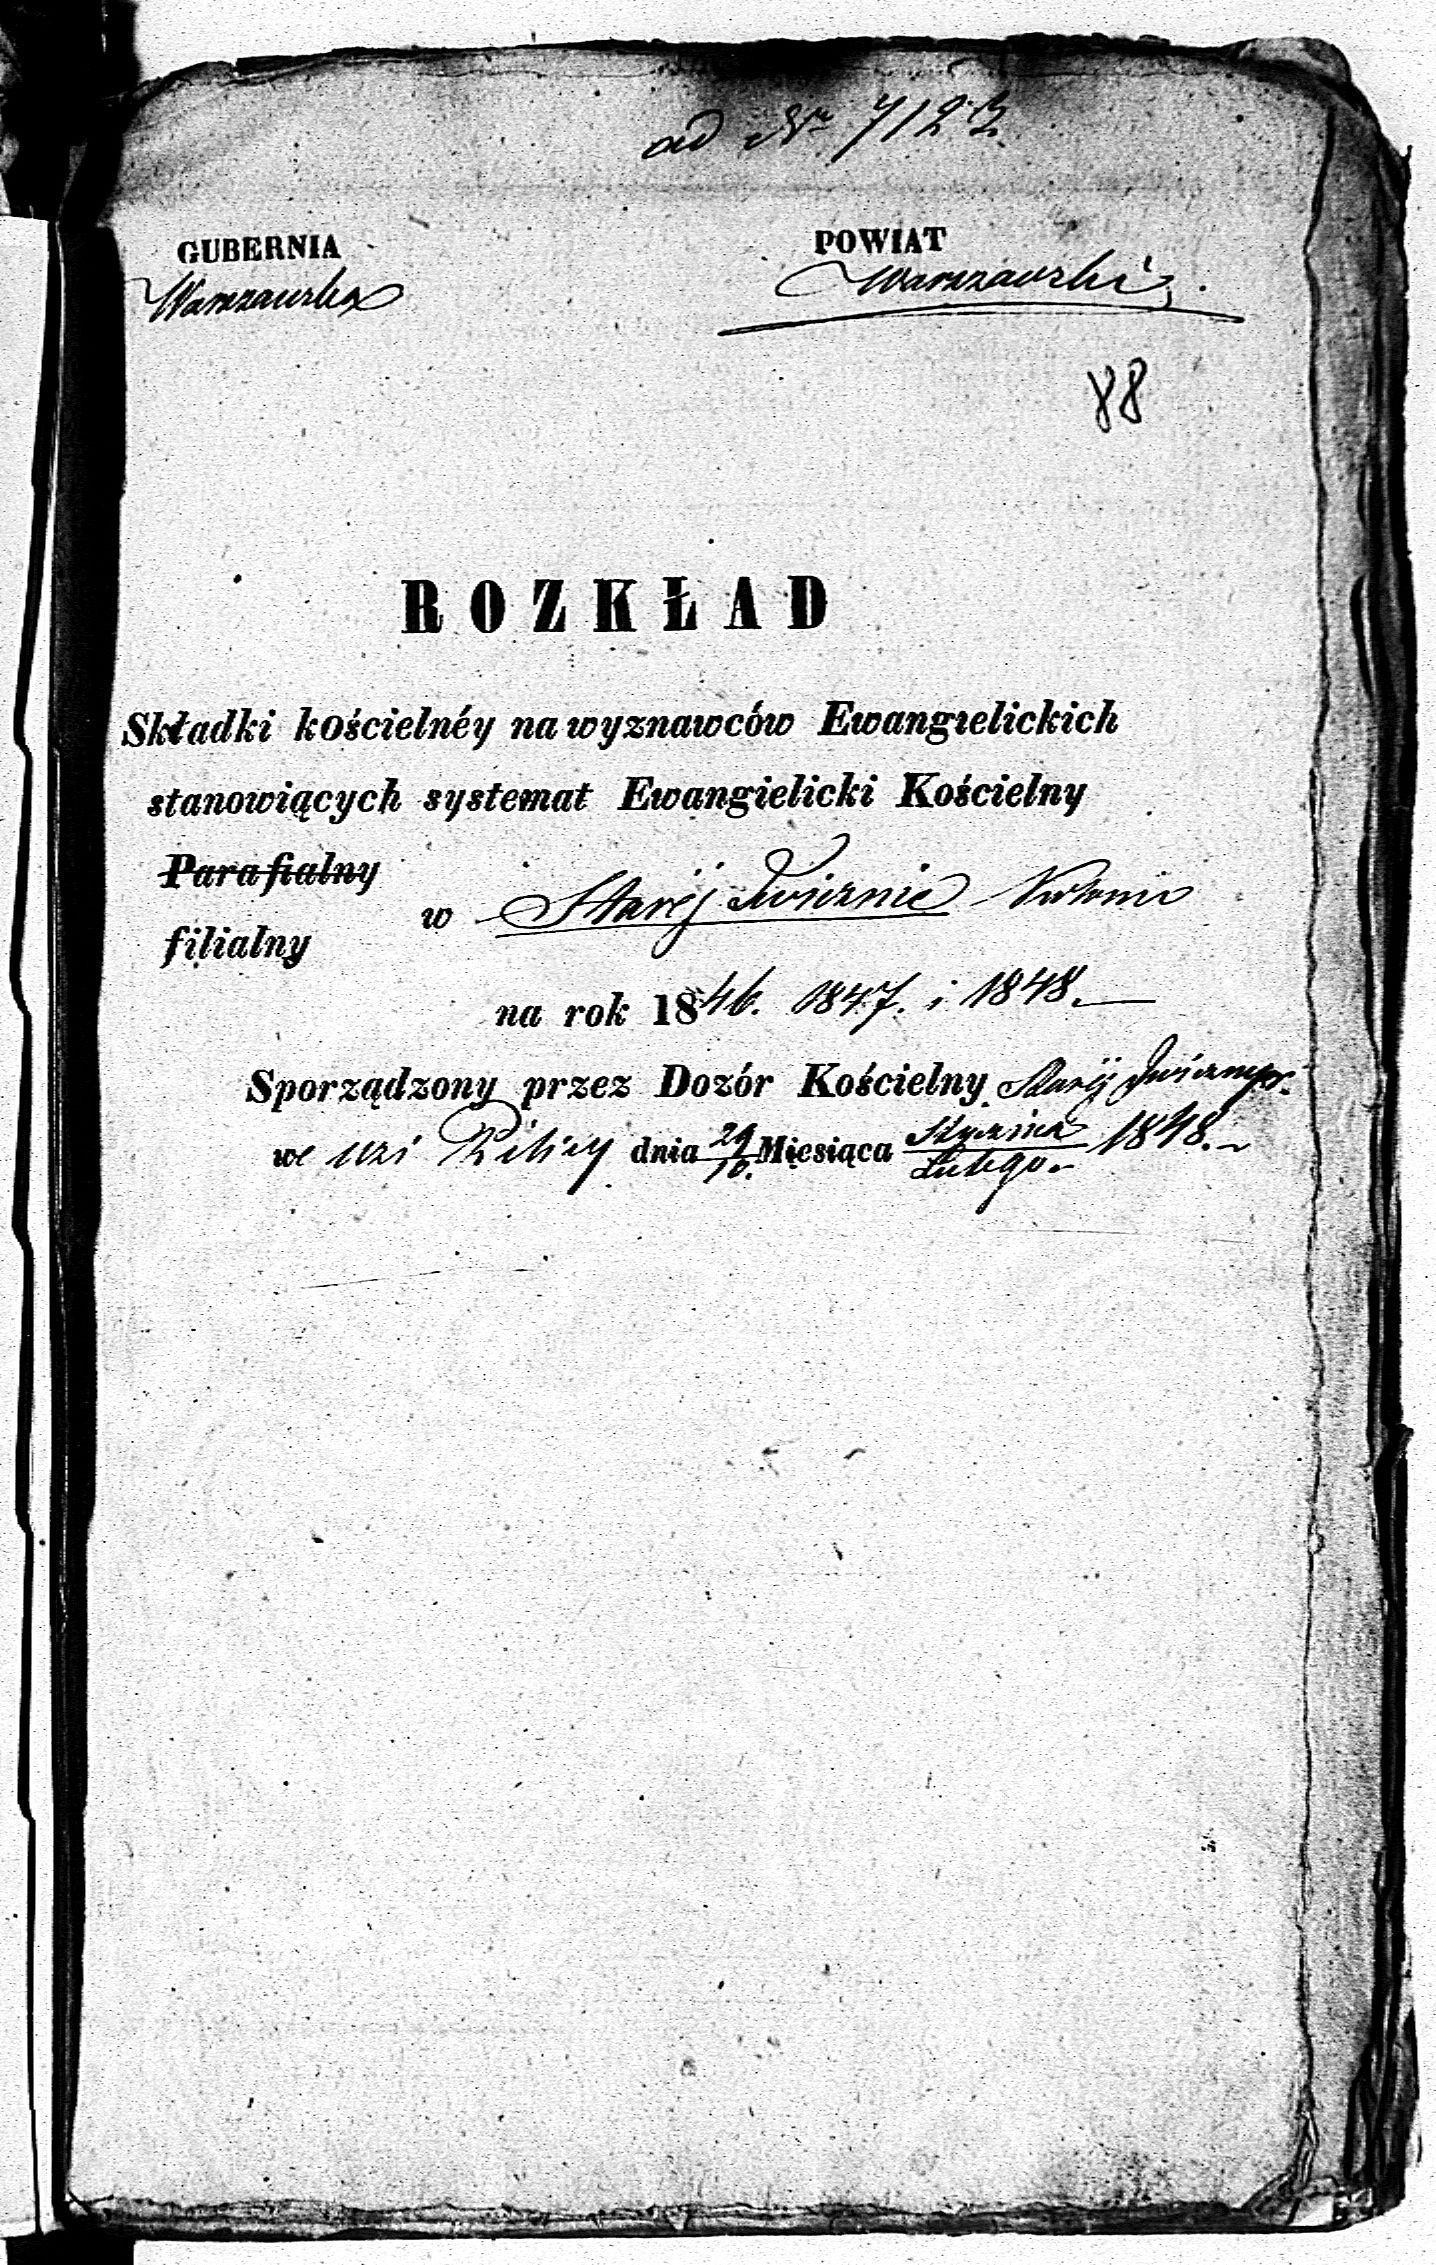 ad Nr 7123.
GUBERNIA
Warszawska
POWIAT
Warszawski.
88
ROZKŁAD
Składki kościelnéy na wyznawców Ewangielickich
stanowiących systemat Ewangielicki Kościelny
Parafialny
w Starej Iwicznie Kolonii
filialny
na rok 1846. 1847. i 1848.
Sporządzony przez Dozór Kościelny Starej
we wsi Pilicy dnia 29/10. Miesiąca Stycznia/Lutego 1848.